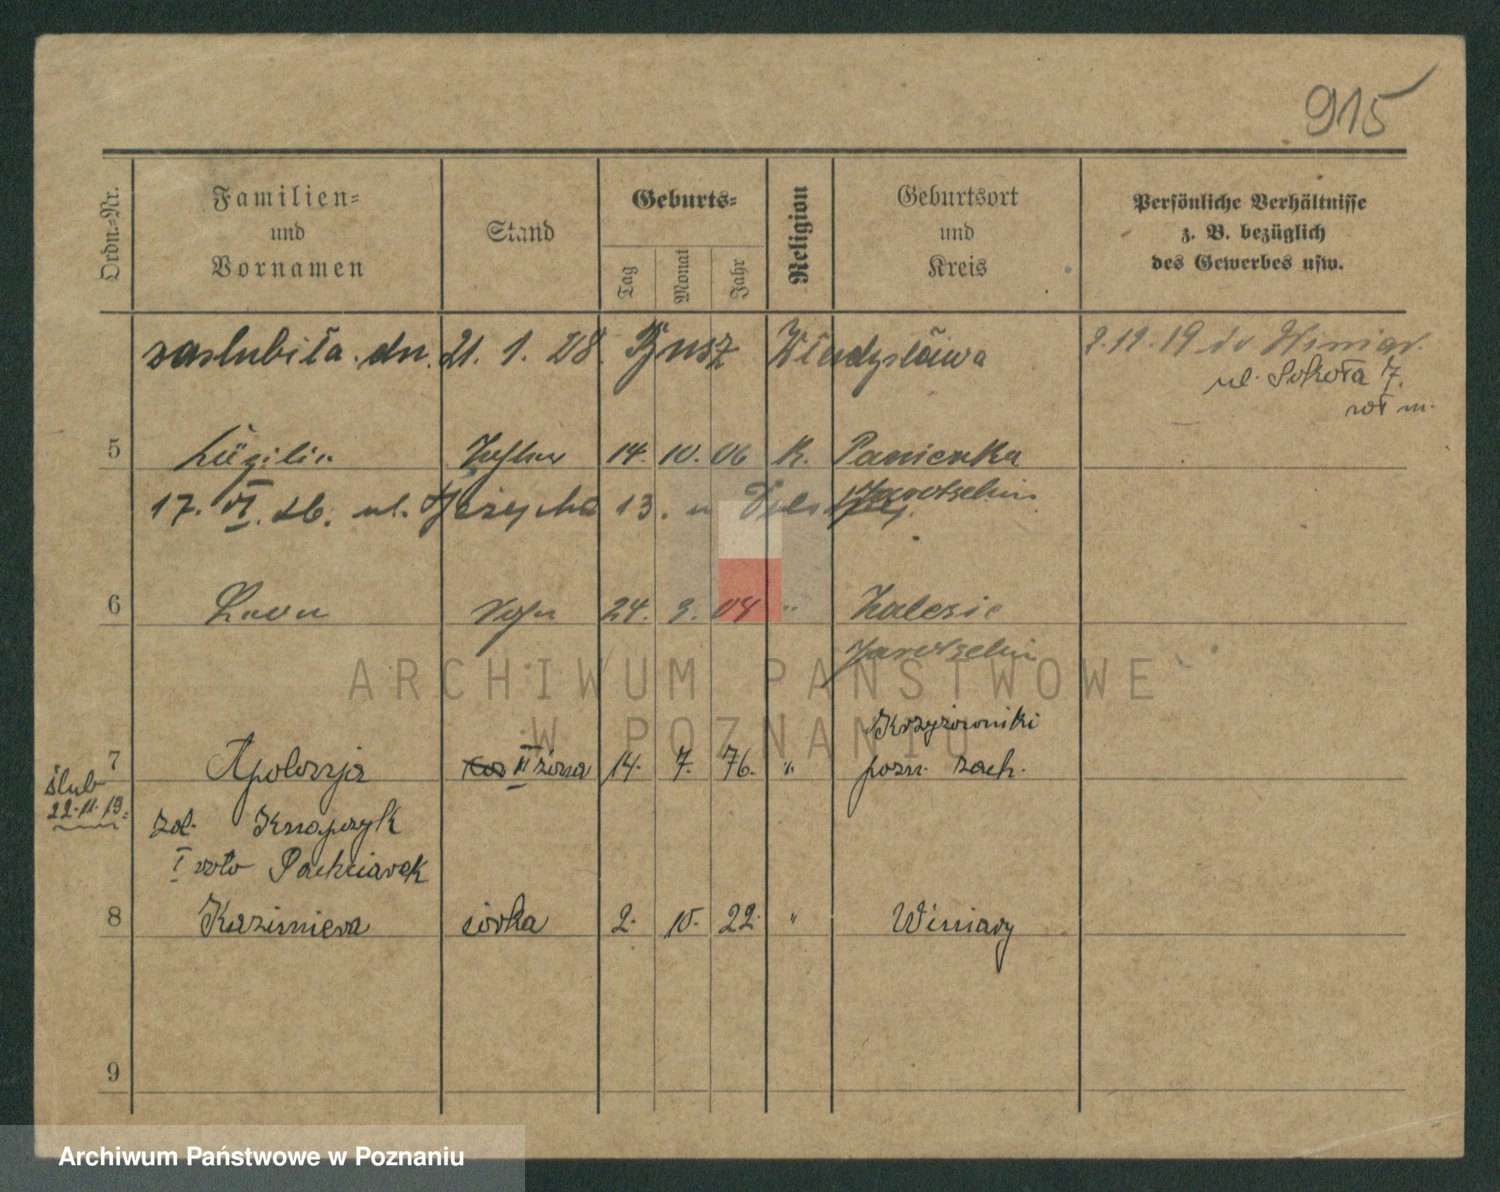 915
Ordn.-Nr.
Familien-
und
Vornamen
Stand
Geburts-
Tag
Monat
Jahr
Religion
Geburtsort
und
Kreis
Persönliche Verhältnisse
z. B. bezüglich
des Gewerbes usw.
zaslubiła dn. 21. 1. 28 Władysława
2.12.19 do Winiar
ul. Sokoła 7.
5 Tochter 14. 10. 06 K. Panienka
17. VI. 26. ul. 13. Jarotschin
6 Leon Sohn 24. 3. 04 " Zalesie
Jarotschin
Krzyżowniki
7 Apolonja II żona 14. 7. 76. " pozn. zach.
ślub
22.11.19.
zd. Knapczyk
I voto Pachciarek
8 Kazimiera córka 2. 10. 22. " Winiary
9
ARCHIWUM PAŃSTWOWE
W POZNANIU
Archiwum Państwowe w Poznaniu